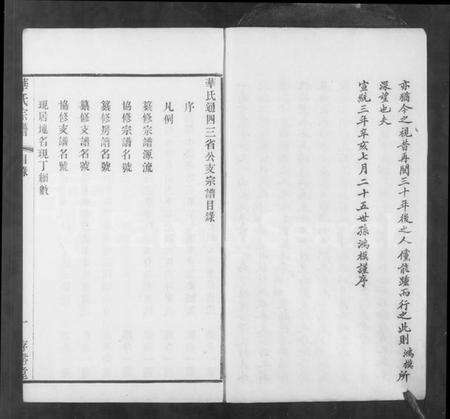 亦猶今之視昔再閱三十年後之人僅能踵而行之此則鴻模所
深望也夫
宣統三年辛亥七月二十五世孫鴻模謹序
華氏通四三省公支宗譜目錄
序
凡例
纂修宗譜源流
協修宗譜名號
纂修房譜名號
纂修支譜名號
協修支譜名號
現居地名現丁總數
華氏宗譜
目錄
一